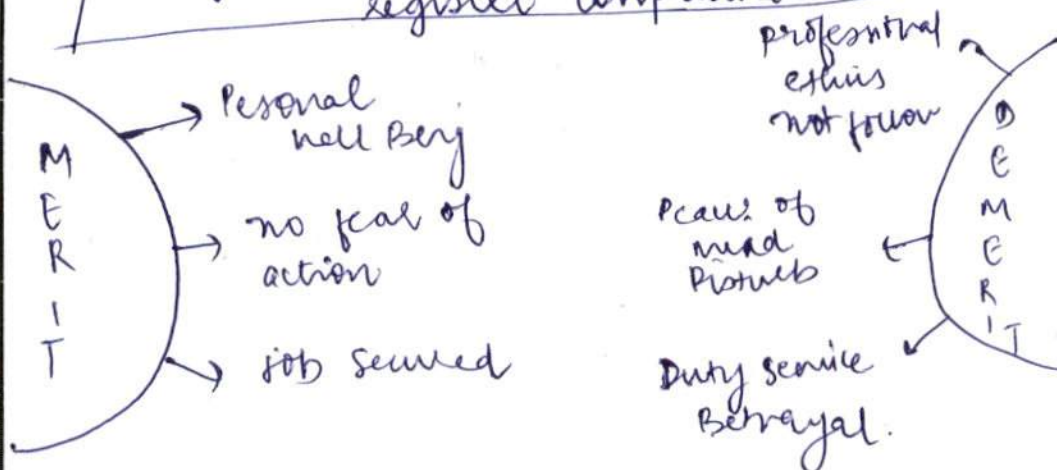 register
MERIT
Pesonal
well Being
no fear of
action
job secured
professional
ethics
not follow
Peace of
mind
Disturb
Duty service
Betrayal.
DEMERIT